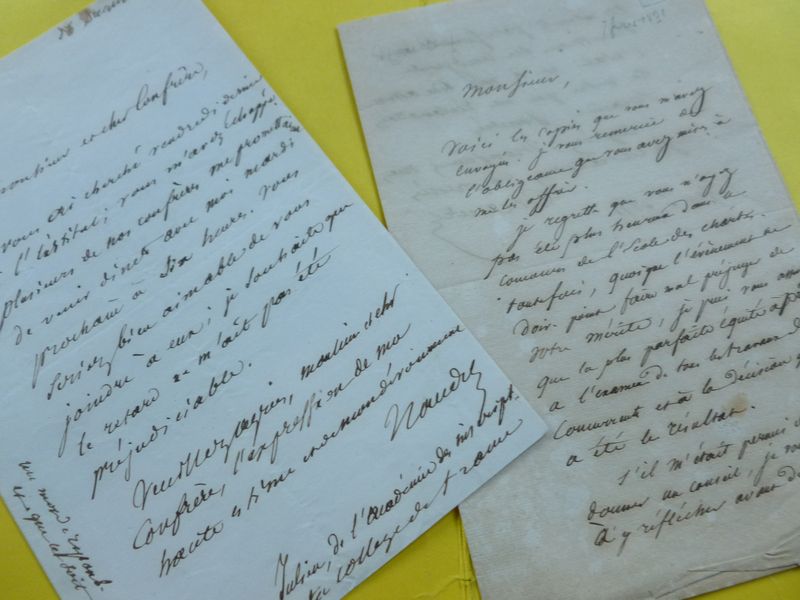 Monsieur et cher Confrère,
vous ai cherché vendredi dernier
à l'Institut; vous m'avez échappé.
plusieurs de nos confrères me promettent
de venir dîner avec moi mardi
prochain à six heures. Vous
seriez bien aimable de vous
joindre à eux; je souhaite que
le retard ne m'ait pas été
préjudiciable.
Veuillez agréer, monsieur et cher
Confrère, l'expression de ma
haute estime et de mon dévouement
Naudet
Julien, de l'académie des inscript.
collège de france
un mot de répons
Monsieur,
voici les copies que vous m'avez
envoyées. je vous remercie de
l'obligeance que vous avez mise à
me les offrir.
Je regrette que vous n'ayez
pas été plus heureux dans le
concours de l'école des chartes.
toutefois, quoique l'évènement ne
doive point faire mal préjuger de
votre mérite, je puis vous
que la plus parfaite équité a
à l'examen de tous les travaux
concurrents et à la décision
a été le résultat.
S'il m'était permis
donner un conseil, je
à y réfléchir avant de